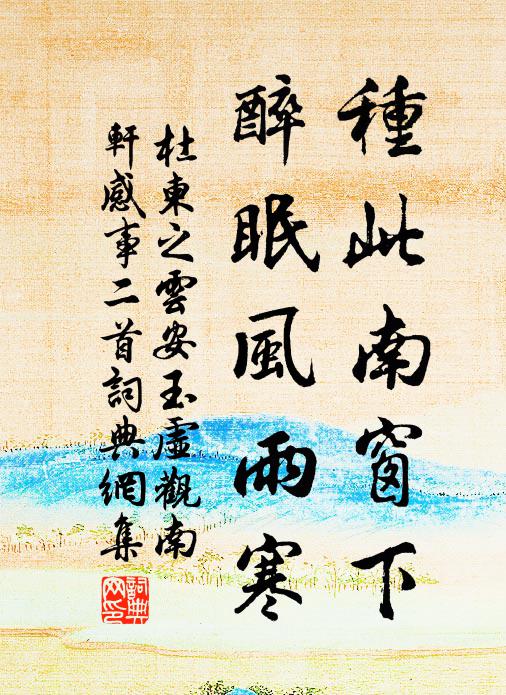 種此南窗下
醉眠風雨寒
杜東之雲安玉虛觀南
軒感事二首詞典網集
詞典
网印